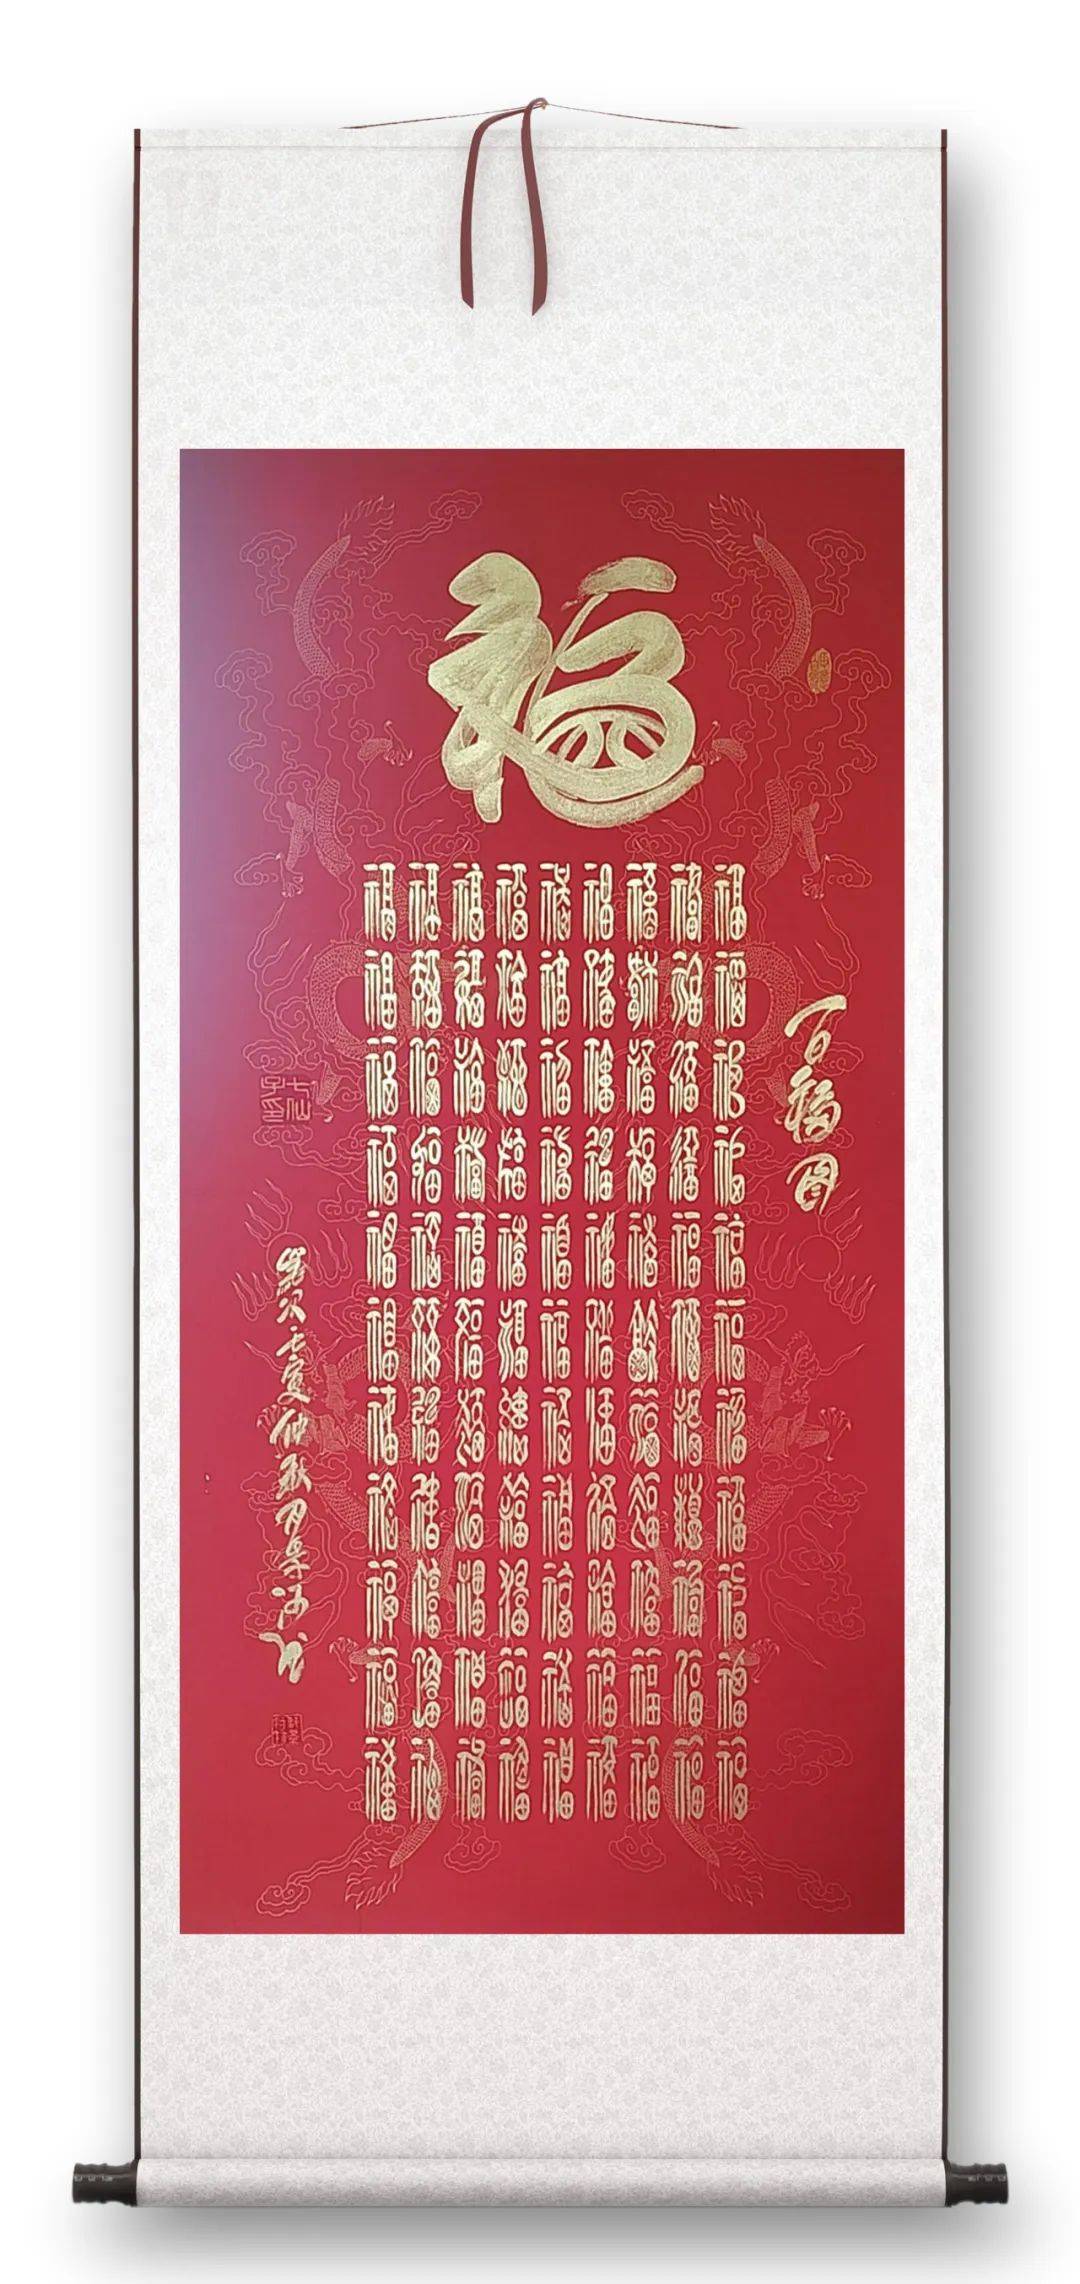 福
百福图
福福福福福福福福福福福
福福福福福福福福福福福
福福福福福福福福福福福
福福福福福福福福福福福
福福福福福福福福福福福
福福福福福福福福福福福
福福福福福福福福福福福
福福福福福福福福福福福
福福福福福福福福福福福
岁次壬寅仲秋月
七仙子印